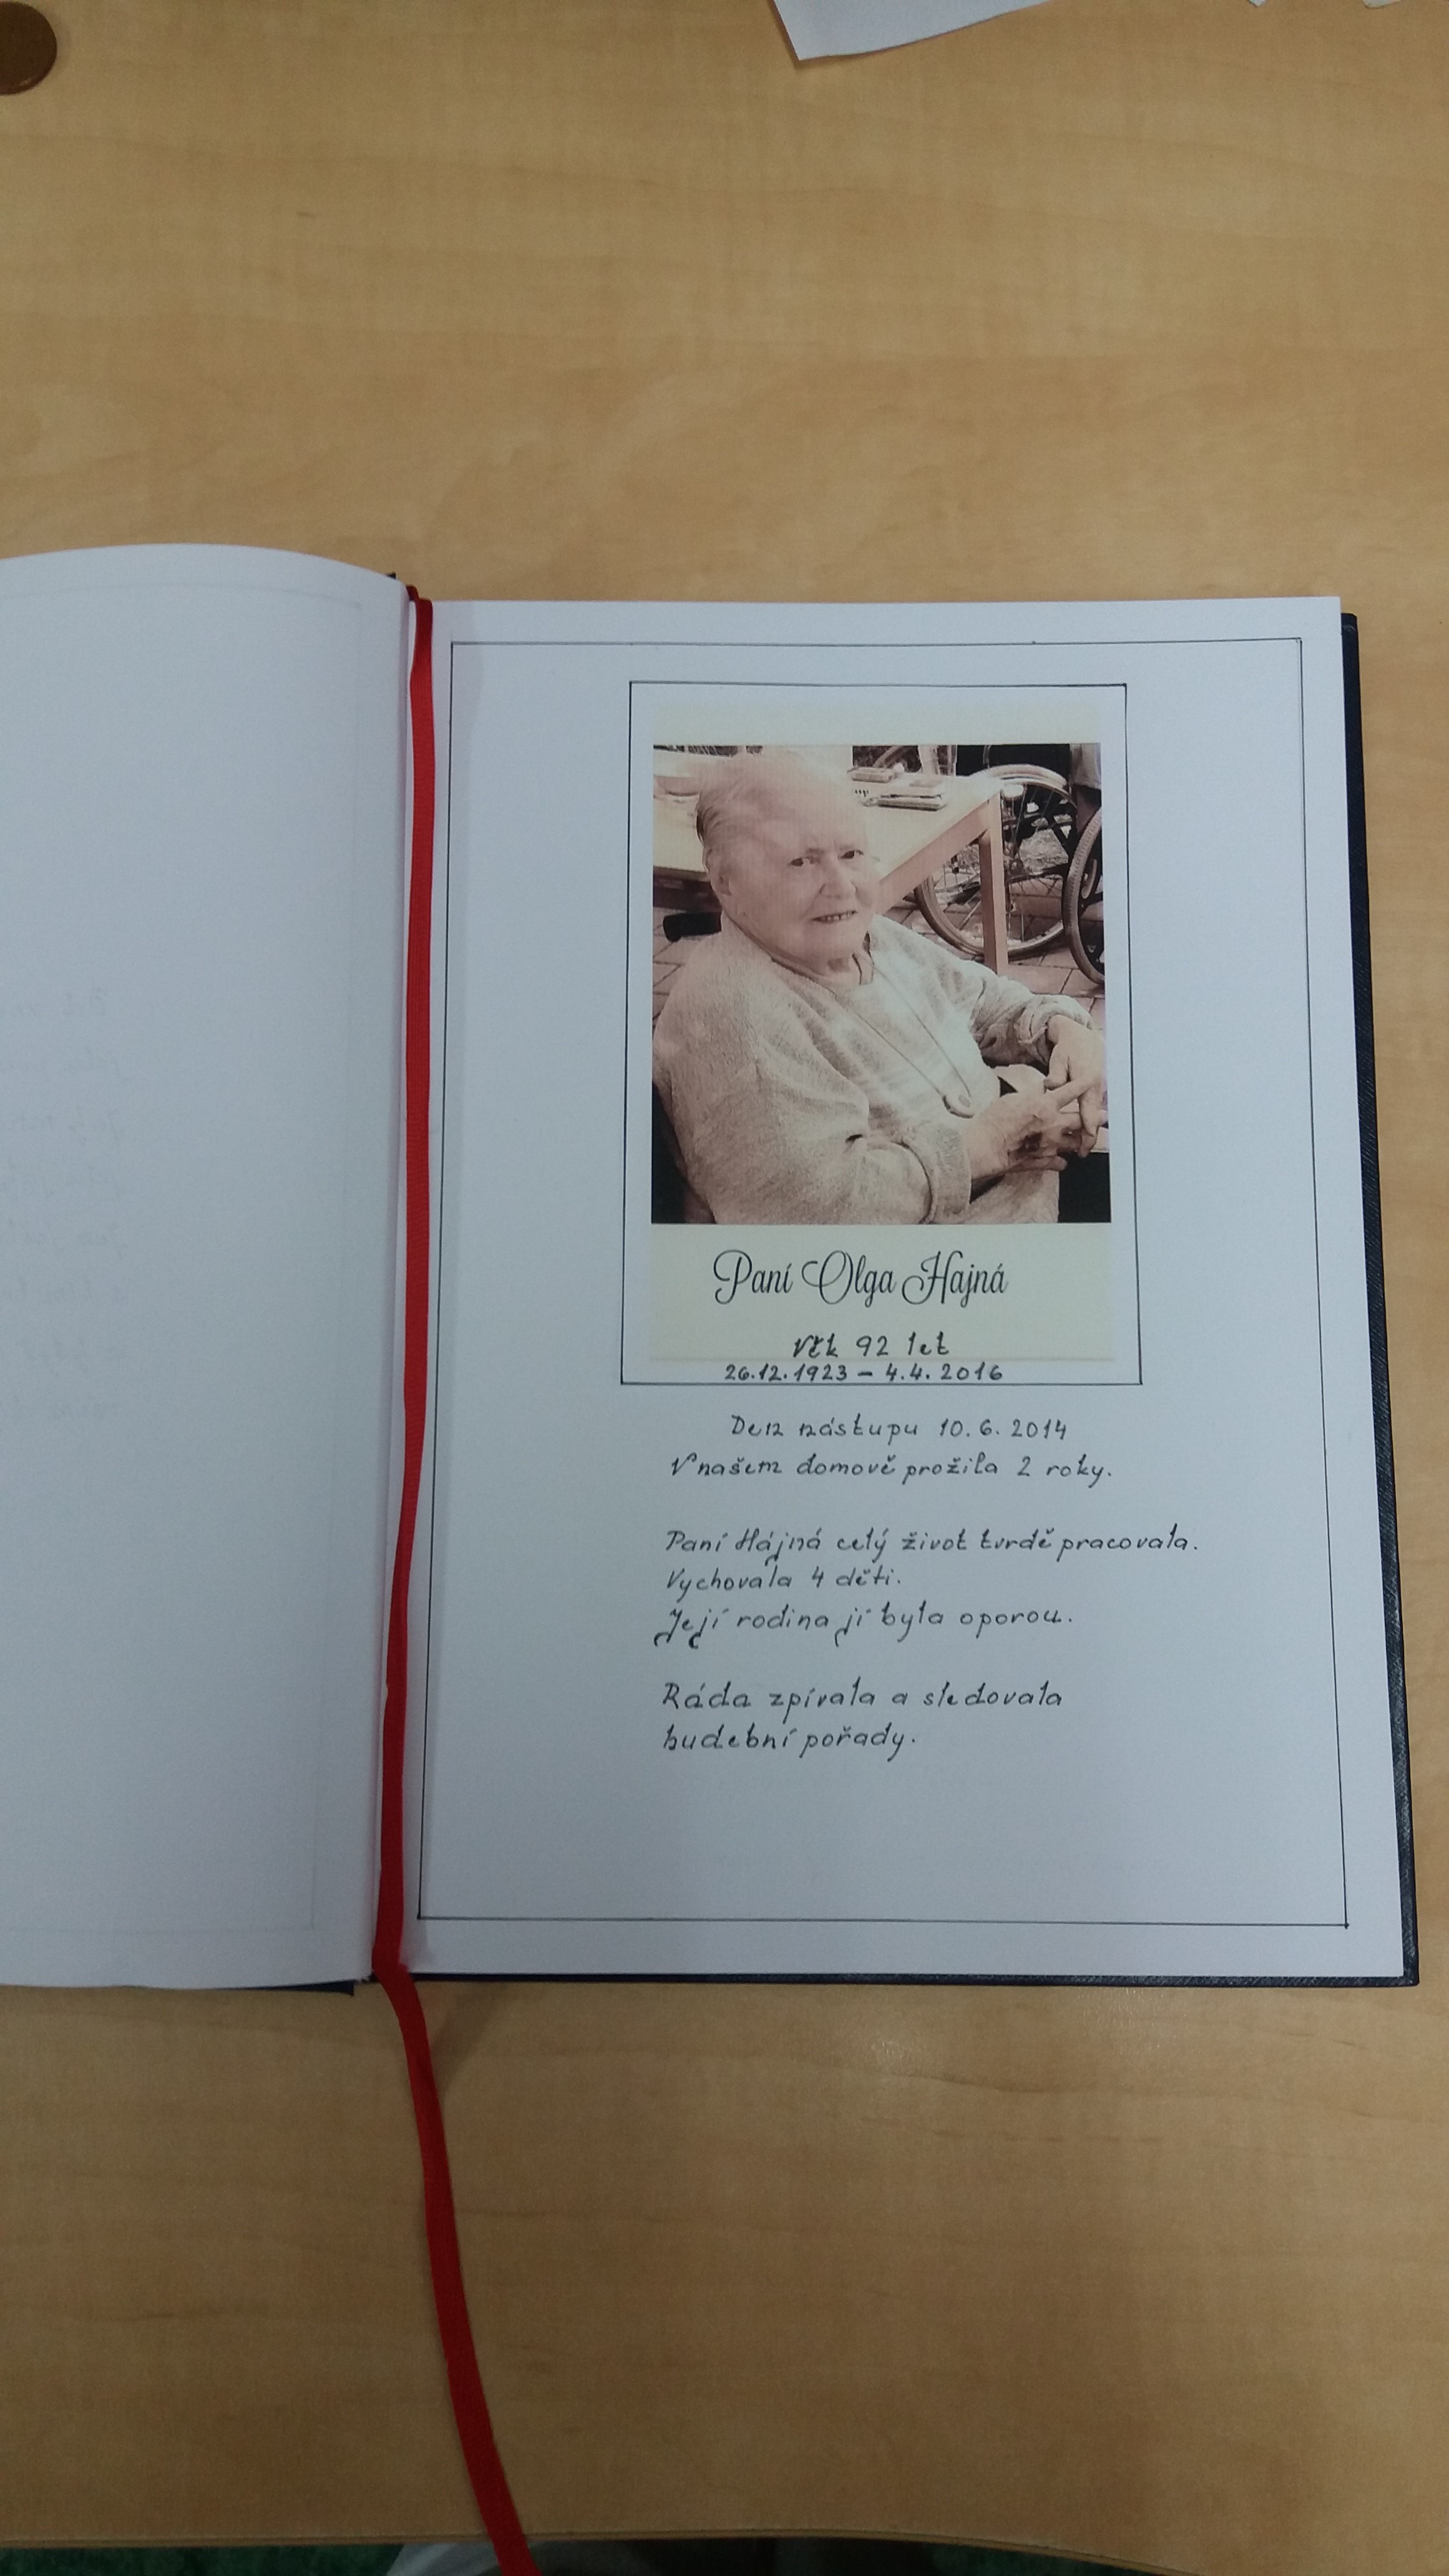 Paní Olga Hajná
Věk 92 let
26.12.1923 – 4.4.2016
Den nástupu 10.6.2014
V našem domově prožila 2 roky.
Paní Hájná celý život tvrdě pracovala.
Vychovala 4 děti.
Její rodina jí byla oporou.
Ráda zpívala a sledovala
hudební pořady.